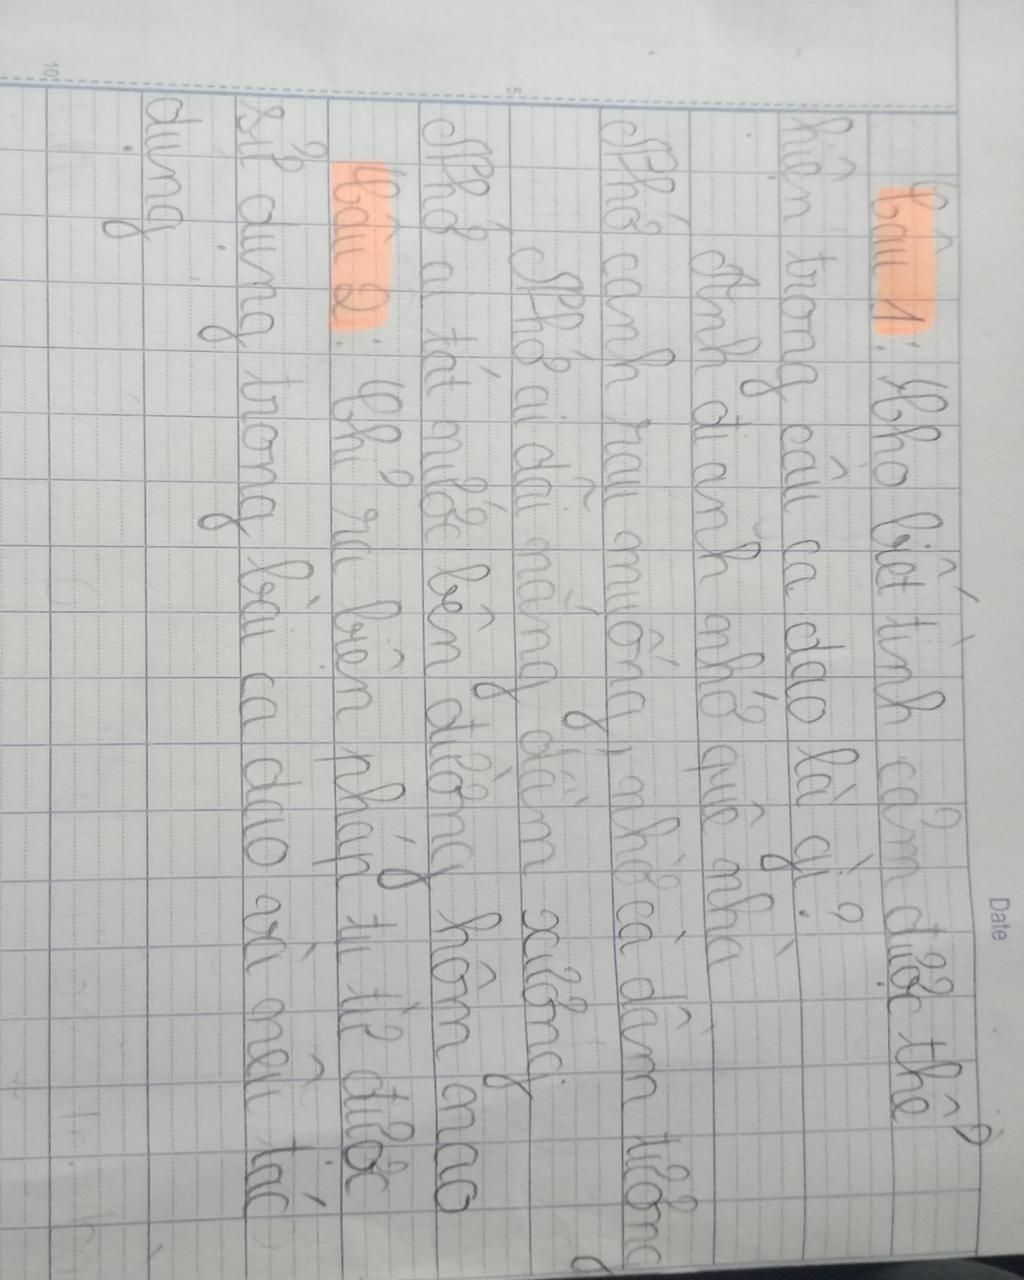 Date
Câu 1: Cho biết tình cảm được thể
hiện trong câu ca dao là gì?
Anh đi anh nhớ quê nhà
Nhớ canh rau muống, nhớ cà dầm tương
Nhớ ai dãi nắng dầm sương
Nhớ ai tát nước bên đường hôm nao
Câu 2: Chỉ ra biện pháp tu từ được
sử dụng trong bài ca dao và nêu tác
dụng
5
10